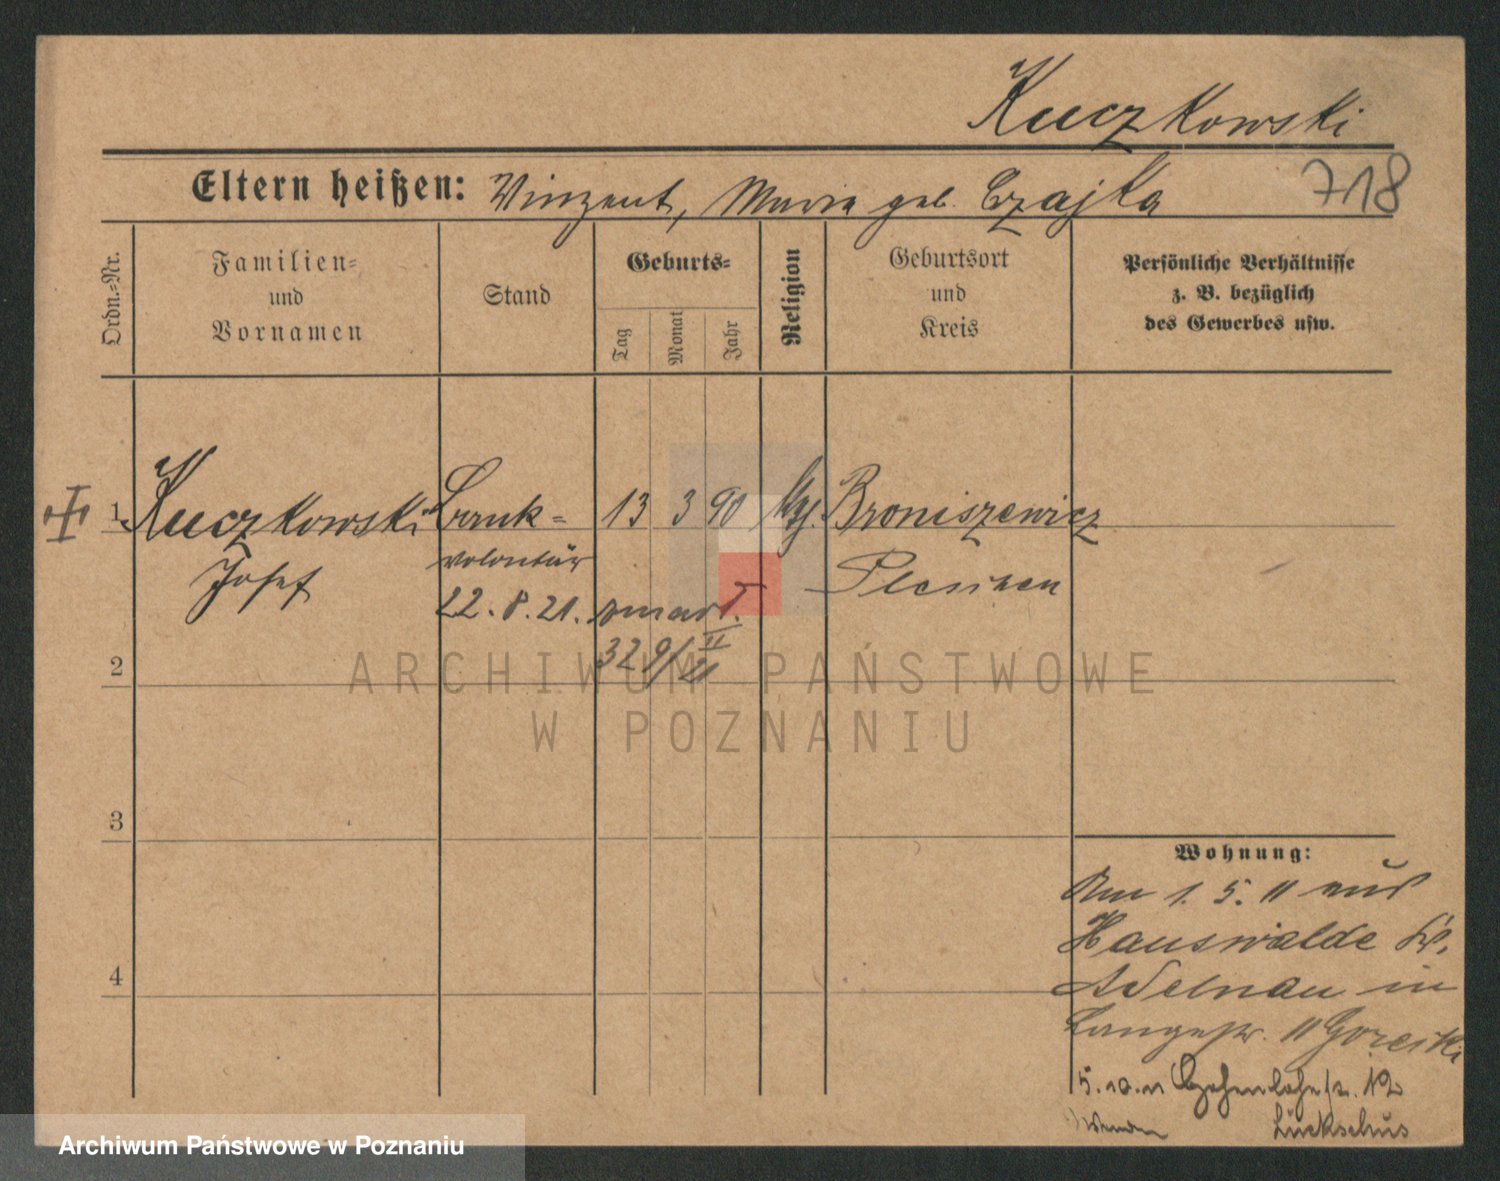 Kuczkowski
Eltern heißen: Vinzent, Maria geb. Czajka
718
Ordn.=Nr.
Familien= und Vornamen
Stand
Geburts=
Tag
Monat
Jahr
Religion
Geburtsort und Kreis
Persönliche Verhältnisse
z. B. bezüglich
des Gewerbes usw.
1 Kuczkowski Bank= 13 3 90 Broniszewicz
Josef volontär Pleschen
22.8.21. zmarł.
329/II 21
2
3
4
Wohnung:
Am 1. 5. 11 aus
Hauswalde Kr.
Adelnau in
Langestr. 11 Gorecki
5.10.11 Hohenlohestr. 12
Wenden Lückschus
ARCHIWUM PAŃSTWOWE
W POZNANIU
Archiwum Państwowe w Poznaniu